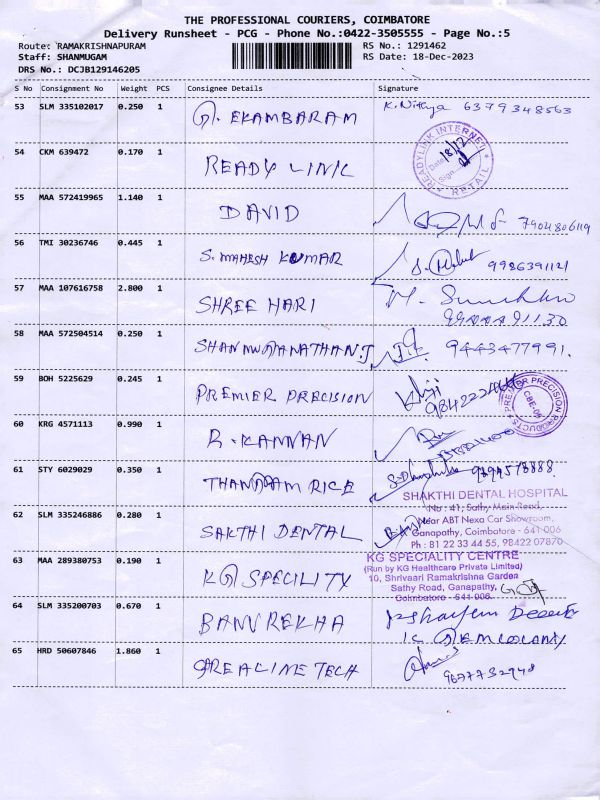 THE PROFESSIONAL COURIERS, COIMBATORE
Delivery Runsheet - PCG - Phone No.:0422-3505555 - Page No.:5
Route: RAMAKRISHNAPURAM RS No.: 1291462
Staff: SHANMUGAM RS Date: 18-Dec-2023
DRS No.: DCJB129146205
S No Consignment No Weight PCS Consignee Details Signature
53 SLM 335102017 0.250 1 G. EKAMBARAM K. Nithya 6379348563
54 CKM 639472 0.170 1 READY LINK
READYLINK INTERNET
Date 18/12
Sign
RETAIL
55 MAA 572419965 1.140 1 DAVID 7904806119
56 TMI 30236746 0.445 1 S. MAHESH KUMAR 9986391121
57 MAA 107616758 2.800 1 SHREE HARI
58 MAA 572504514 0.250 1 9443477991.
59 BOH 5225629 0.245 1 PREMIER PRECISION
PREMIER PRECISION PRODUCTS
60 KRG 4571113 0.990 1 R. KANNAN
61 STY 6029029 0.350 1 RICE
SHAKTHI DENTAL HOSPITAL
No : 41, Sathy Main Road,
62 SLM 335246886 0.280 1 SAKTHI DENTAL Near ABT Nexa Car Showroom,
Ganapathy, Coimbatore - 641 006
Ph : 81 22 33 44 55, 98422 07870
KG SPECIALITY CENTRE
63 MAA 289380753 0.190 1 KG SPECILITY (Run by KG Healthcare Private Limited)
10, Shrivaari Ramakrishna Garden
Sathy Road, Ganapathy,
Coimbatore - 641 006.
64 SLM 335200703 0.670 1 BANU REKHA
65 HRD 50607846 1.860 1 TECH